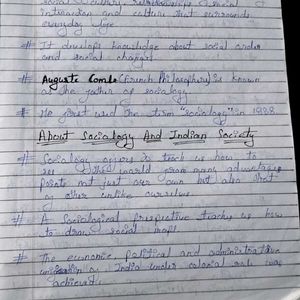 social culture, relationships, social
interaction and culture that surrounds
everyday life
# It develops knowledge about social order
and social change
# Auguste Comte (French Philosopher) is known
as the father of sociology
# He first used the term "sociology" in 1938
About Sociology And Indian Society
# Sociology offers to teach us how to
see the world from many
points not just our own but also that
of other unlike ourselves.
# A Sociological Prespective teaches us how
to draw social maps
# The economic, political and administrative
unification of India under colonial rule was
achieved.